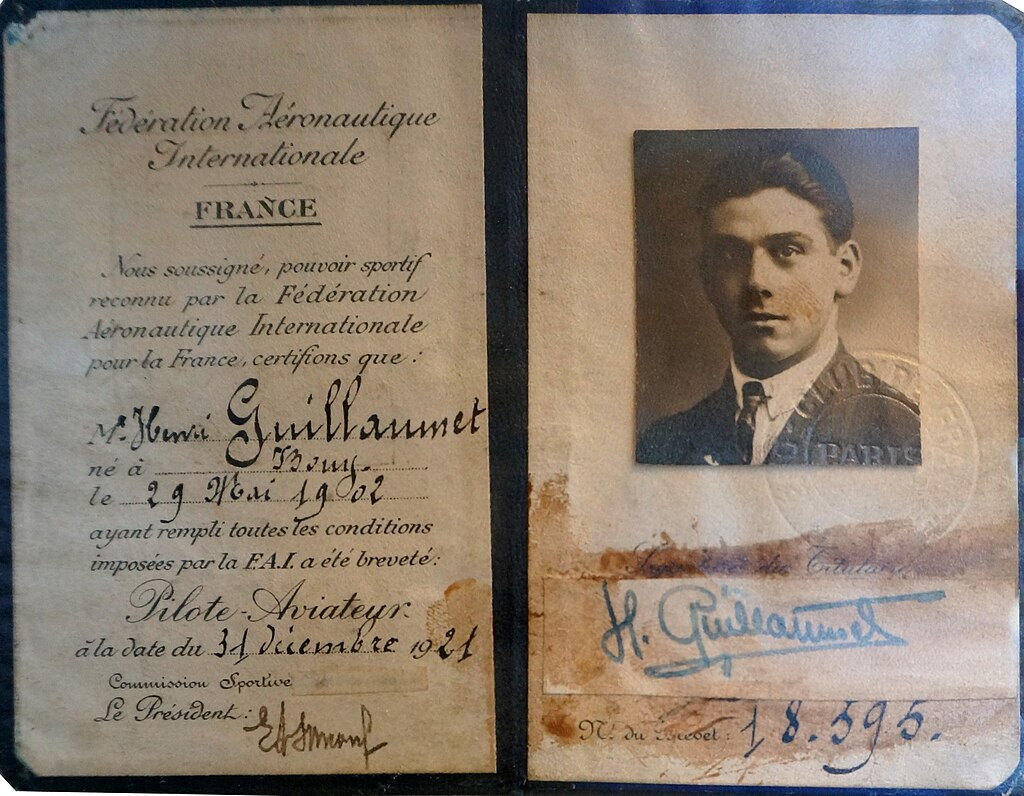 Fédération Aéronautique
Internationale
FRANCE
Nous soussigné, pouvoir sportif
reconnu par la Fédération
Aéronautique Internationale
pour la France, certifions que :
Mr. Henri Guillaumet
né à Bouy
le 29 Mai 1902
ayant rempli toutes les conditions
imposées par la F.A.I. a été breveté:
Pilote-Aviateur.
à la date du 31 décembre 1921
Commission Sportive
Le Président:
PARIS
du Titulaire
H. Guillaumet
No. du Brevet: 18.595.